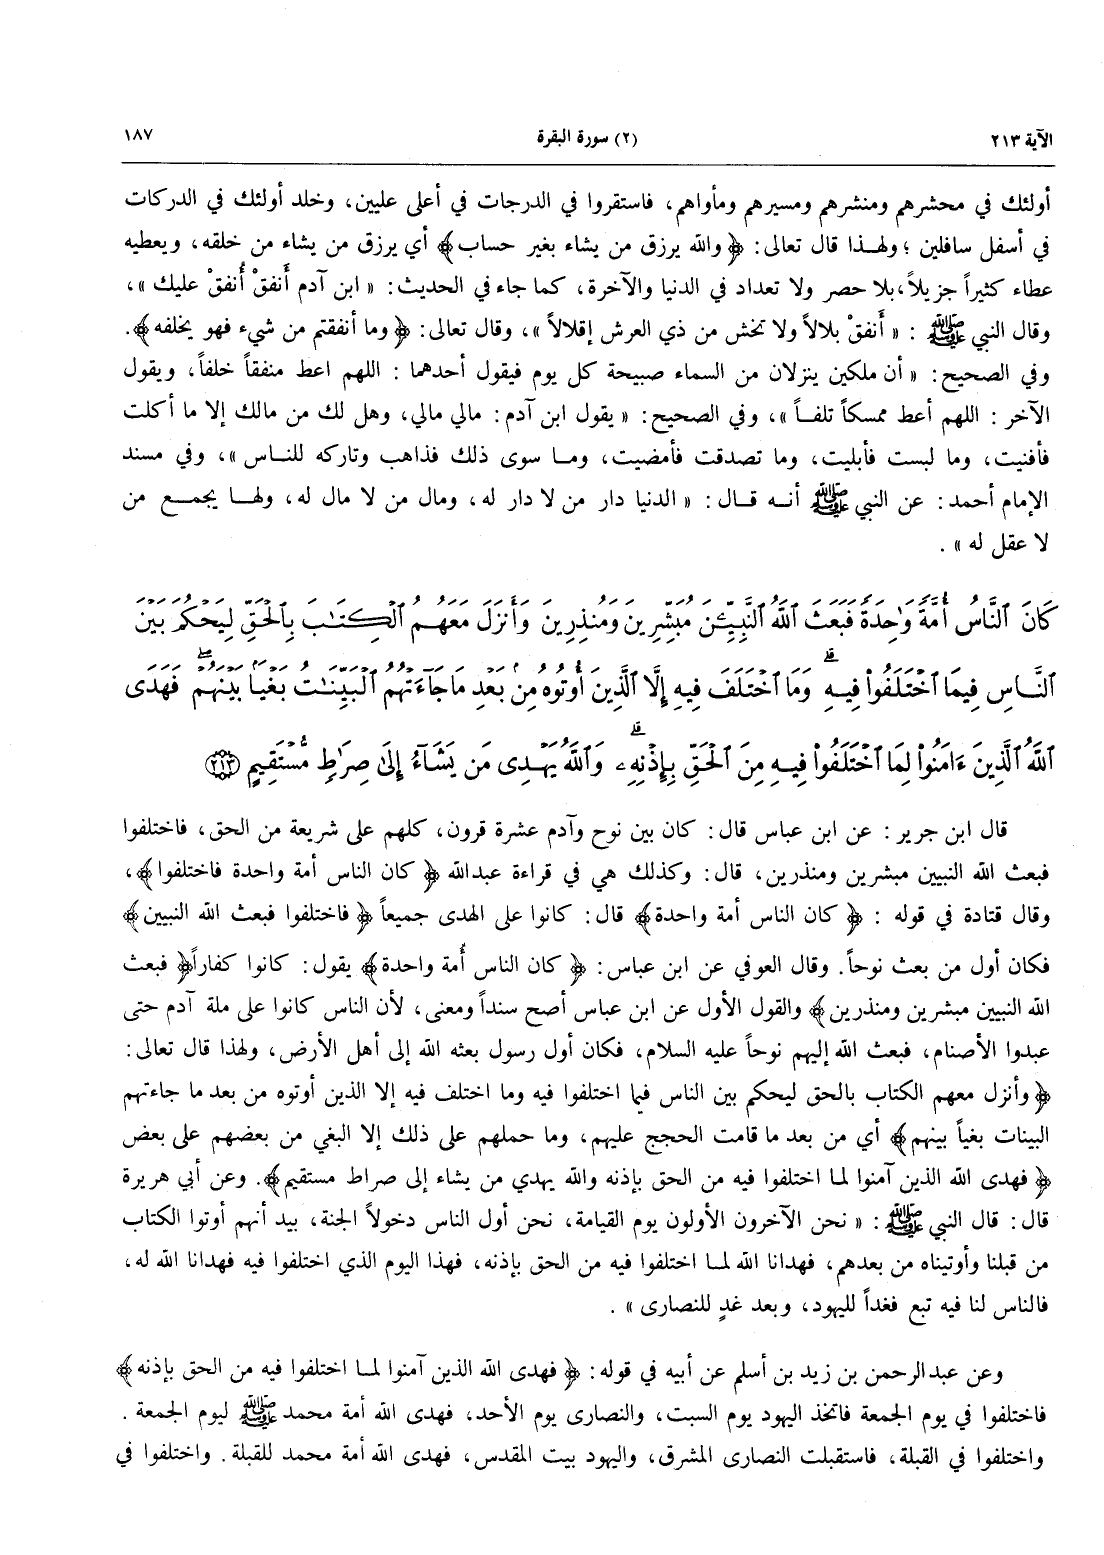 الآية ٢١٣ (٢) سورة البقرة ١٨٧
أولئك في محشرهم ومنشرهم ومسيرهم ومأواهم، فاستقروا في الدرجات في أعلى عليين، وخلد أولئك في الدركات
في أسفل سافلين ؛ ولهذا قال تعالى: ﴿ والله يرزق من يشاء بغير حساب﴾ أي يرزق من يشاء من خلقه، ويعطيه
عطاء كثيراً جزيلاً، بلا حصر ولا تعداد في الدنيا والآخرة، كما جاء في الحديث: « ابن آدم أَنفقْ أُنفقْ عليك »،
وقال النبي ﷺ : « أَنفقْ بلالاً ولا تخش من ذي العرش إقلالاً »، وقال تعالى: ﴿ وما أنفقتم من شيء فهو يخلفه﴾.
وفي الصحيح: « أن ملكين ينزلان من السماء صبيحة كل يوم فيقول أحدهما : اللهم اعط منفقاً خلفاً، ويقول
الآخر : اللهم أعط ممسكاً تلفـاً »، وفي الصحيح: « يقول ابن آدم: مالي مالي، وهل لك من مالك إلا ما أكلت
فأفنيت، وما لبست فأبليت، وما تصدقت فأمضيت، ومـا سوى ذلك فذاهب وتاركه للنـاس »، وفي مسند
الإمام أحمد: عن النبي ﷺ أنـه قـال: « الدنيا دار من لا دار له، ومال من لا مال له، ولهـا يجمـع من
لا عقل له » .
كَانَ ٱلنَّاسُ أُمَّةً وَٰحِدَةً فَبَعَثَ ٱللَّهُ ٱلنَّبِيِّـۧنَ مُبَشِّرِينَ وَمُنذِرِينَ وَأَنزَلَ مَعَهُمُ ٱلۡكِتَٰبَ بِٱلۡحَقِّ لِيَحۡكُمَ بَيۡنَ
ٱلنَّاسِ فِيمَا ٱخۡتَلَفُواْ فِيهِۚ وَمَا ٱخۡتَلَفَ فِيهِ إِلَّا ٱلَّذِينَ أُوتُوهُ مِنۢ بَعۡدِ مَا جَآءَتۡهُمُ ٱلۡبَيِّنَٰتُ بَغۡيَۢا بَيۡنَهُمۡۖ فَهَدَى
ٱللَّهُ ٱلَّذِينَ ءَامَنُواْ لِمَا ٱخۡتَلَفُواْ فِيهِ مِنَ ٱلۡحَقِّ بِإِذۡنِهِۦۗ وَٱللَّهُ يَهۡدِى مَن يَشَآءُ إِلَىٰ صِرَٰطٖ مُّسۡتَقِيمٍ ٢١٣
قال ابن جرير : عن ابن عباس قال: كان بين نوح وآدم عشرة قرون، كلهم على شريعة من الحق، فاختلفوا
فبعث الله النبيين مبشرين ومنذرين، قال: وكذلك هي في قراءة عبدالله ﴿ كان الناس أمة واحدة فاختلفوا﴾،
وقال قتادة في قوله : ﴿ كان الناس أمة واحدة﴾ قال: كانوا على الهدى جميعاً ﴿ فاختلفوا فبعث الله النبيين﴾
فكان أول من بعث نوحاً. وقال العوفي عن ابن عباس: ﴿ كان الناس أُمة واحدة﴾ يقول: كانوا كفاراً ﴿ فبعث
الله النبيين مبشرين ومنذرين﴾ والقول الأول عن ابن عباس أصح سنداً ومعنى، لأن الناس كانوا على ملة آدم حتى
عبدوا الأصنام، فبعث الله إليهم نوحاً عليه السلام، فكان أول رسول بعثه الله إلى أهل الأرض، ولهذا قال تعالى:
﴿ وأنزل معهم الكتاب بالحق ليحكم بين الناس فيما اختلفوا فيه وما اختلف فيه إلا الذين أوتوه من بعد ما جاءتهم
البينات بغياً بينهم﴾ أي من بعد ما قامت الحجج عليهم، وما حملهم على ذلك إلا البغي من بعضهم على بعض
﴿ فهدى الله الذين آمنوا لمـا اختلفوا فيه من الحق بإذنه والله يهدي من يشاء إلى صراط مستقيم﴾. وعن أبي هريرة
قال: قال النبي ﷺ : « نحن الآخرون الأولون يوم القيامة، نحن أول الناس دخولاً الجنة، بيد أنهم أوتوا الكتاب
من قبلنا وأوتيناه من بعدهم، فهدانا الله لمـا اختلفوا فيه من الحق بإذنه، فهذا اليوم الذي اختلفوا فيه فهدانا الله له،
فالناس لنا فيه تبع فغداً لليهود، وبعد غدٍ للنصارى » .
وعن عبدالرحمن بن زيد بن أسلم عن أبيه في قوله: ﴿ فهدى الله الذين آمنوا لمـا اختلفوا فيه من الحق بإذنه ﴾
فاختلفوا في يوم الجمعة فاتخذ اليهود يوم السبت، والنصارى يوم الأحد، فهدى الله أمة محمد ﷺ ليوم الجمعة .
واختلفوا في القبلة، فاستقبلت النصارى المشرق، واليهود بيت المقدس، فهدى الله أمة محمد للقبلة. واختلفوا في